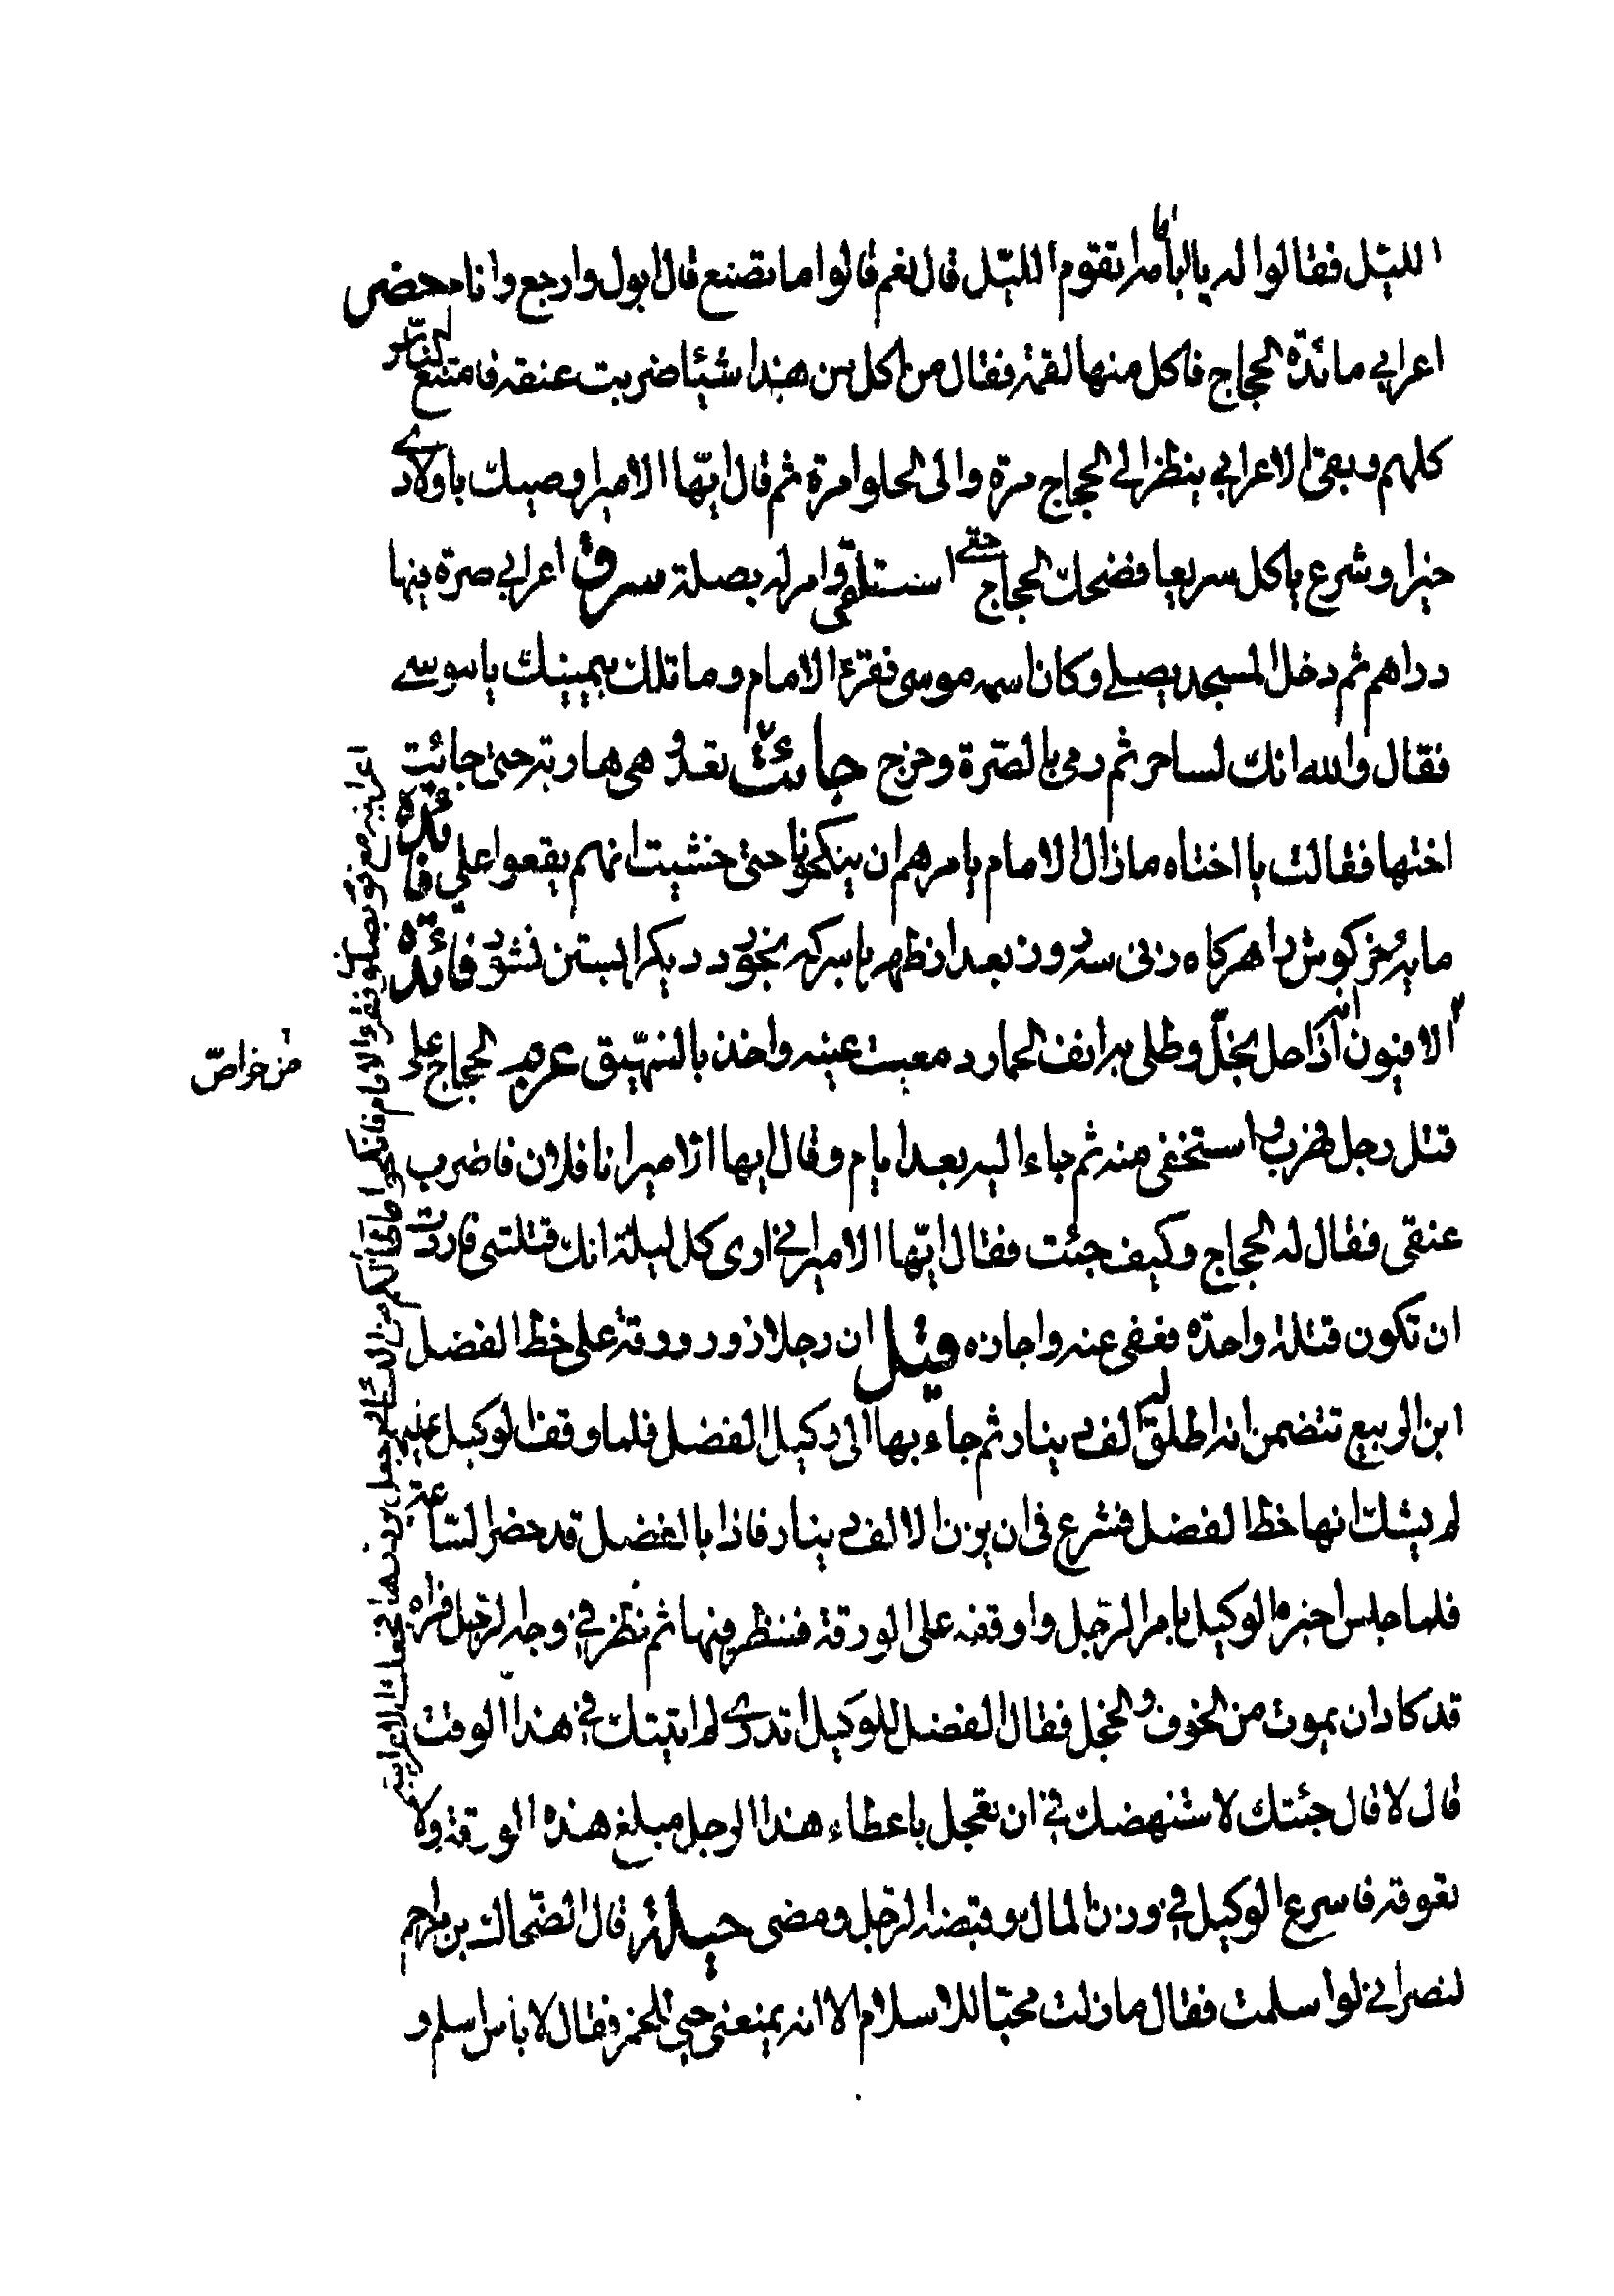 الليل فقالوا له يا ابا مرا تقوم الليل قال نعم قالوا ما تصنع قال ابول وارجع وانام حضر
اعرابي مائدة الحجاج فاكل منها لقمة فقال من اكل من هذا شيئا ضربت عنقه فامتنع الناس
كلهم وبقى الاعرابي ينظر الى الحجاج مرة والى الحلوا مرة ثم قال ايها الامير اوصيك باولادي
خيرا وشرع ياكل سريعا فضحك الحجاج حتى استلقى وامر له بصلة سرق اعرابي صرة فيها
دراهم ثم دخل المسجد يصلي وكان اسمه موسى فقرء الامام وما تلك بيمينك يا موسى
فقال والله انك لساحر ثم رمى بالصرة وخرج جائت تعدو هي هاربة حتى جائت
اختها فقالت يا اختاه ما زال الامام يامرهم ان ينكحونا حتى خشيت انهم يقعوا علي فائدة
مايه خركوش را هركاه زنى سه روز بعد از طهر با سركه بخورد ديكر ابستن نشود فائدة
الافيون انه اذا حل بخل وطلي به انف الحمار دمعت عينه واخذ بالنهيق عزم الحجاج على
من خواص
قتل رجل فهرب واستخفى منه ثم جاء اليه بعد ايام وقال ايها الامير انا فلان فاضرب
عنقي فقال له الحجاج وكيف جئت فقال ايها الامير اني ارى كل ليلة انك قتلتني فاردت
ان تكون قتلة واحدة فعفى عنه واجازه قيل ان رجلا زور ورقة على خط الفضل
ابن الربيع تتضمن انه اطلق له الف دينار ثم جاء بها الى وكيل الفضل فلما وقف الوكيل عليها
لم يشك انها خط الفضل فشرع في ان يزن الالف دينار فاذا بالفضل قد حضر الساعة
فلما جلس اخبره الوكيل بامر الرجل واوقفه على الورقة فنظر فيها ثم نظر في وجه الرجل فراه
قد كاد ان يموت من الخوف والخجل فقال الفضل للوكيل اتدري لم اتيتك في هذا الوقت
قال لا قال جئتك لاستنهضك في ان تعجل باعطاء هذا الرجل مبلغ هذه الورقة ولا
تعوقه فاسرع الوكيل في وزن المال وقبضه الرجل ومضى حيلة قال الضحاك بن مزاحم
لنصراني لو اسلمت فقال ما زلت محبا للاسلام الا انه يمنعني حبي للخمر فقال لا باس اسلم و
اعرابية مع قوم يصلون فقرء الامام فانكحوا ما طاب لكم من النساء وجعل يرددها فجعلت الاعرابية